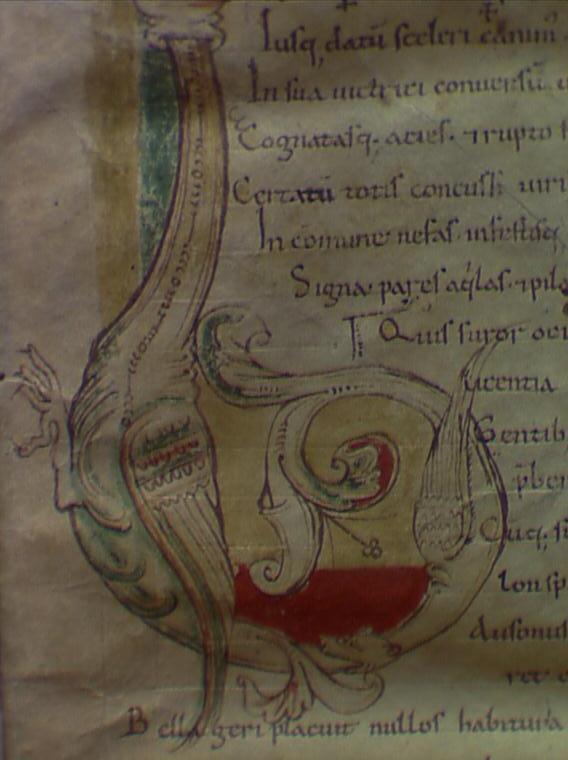 Iusq, datũ sceleri canim'
In sua uictrici conuersũ
Cognatasq. acies. & rupto
Certatũ totis concussi uiri
In cõmune nefas. infestisq;
Signa pares aq̃las. & pila
Quis furor o
licentia
Gentib
p̃ber
Cũq; s
Ionsp
Ausoniis
ret e
Bella geri placuit nullos habitura